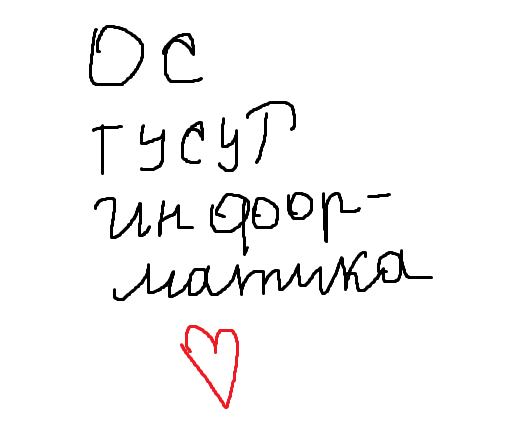 ОС
ТУСУТ
инфор-
матика